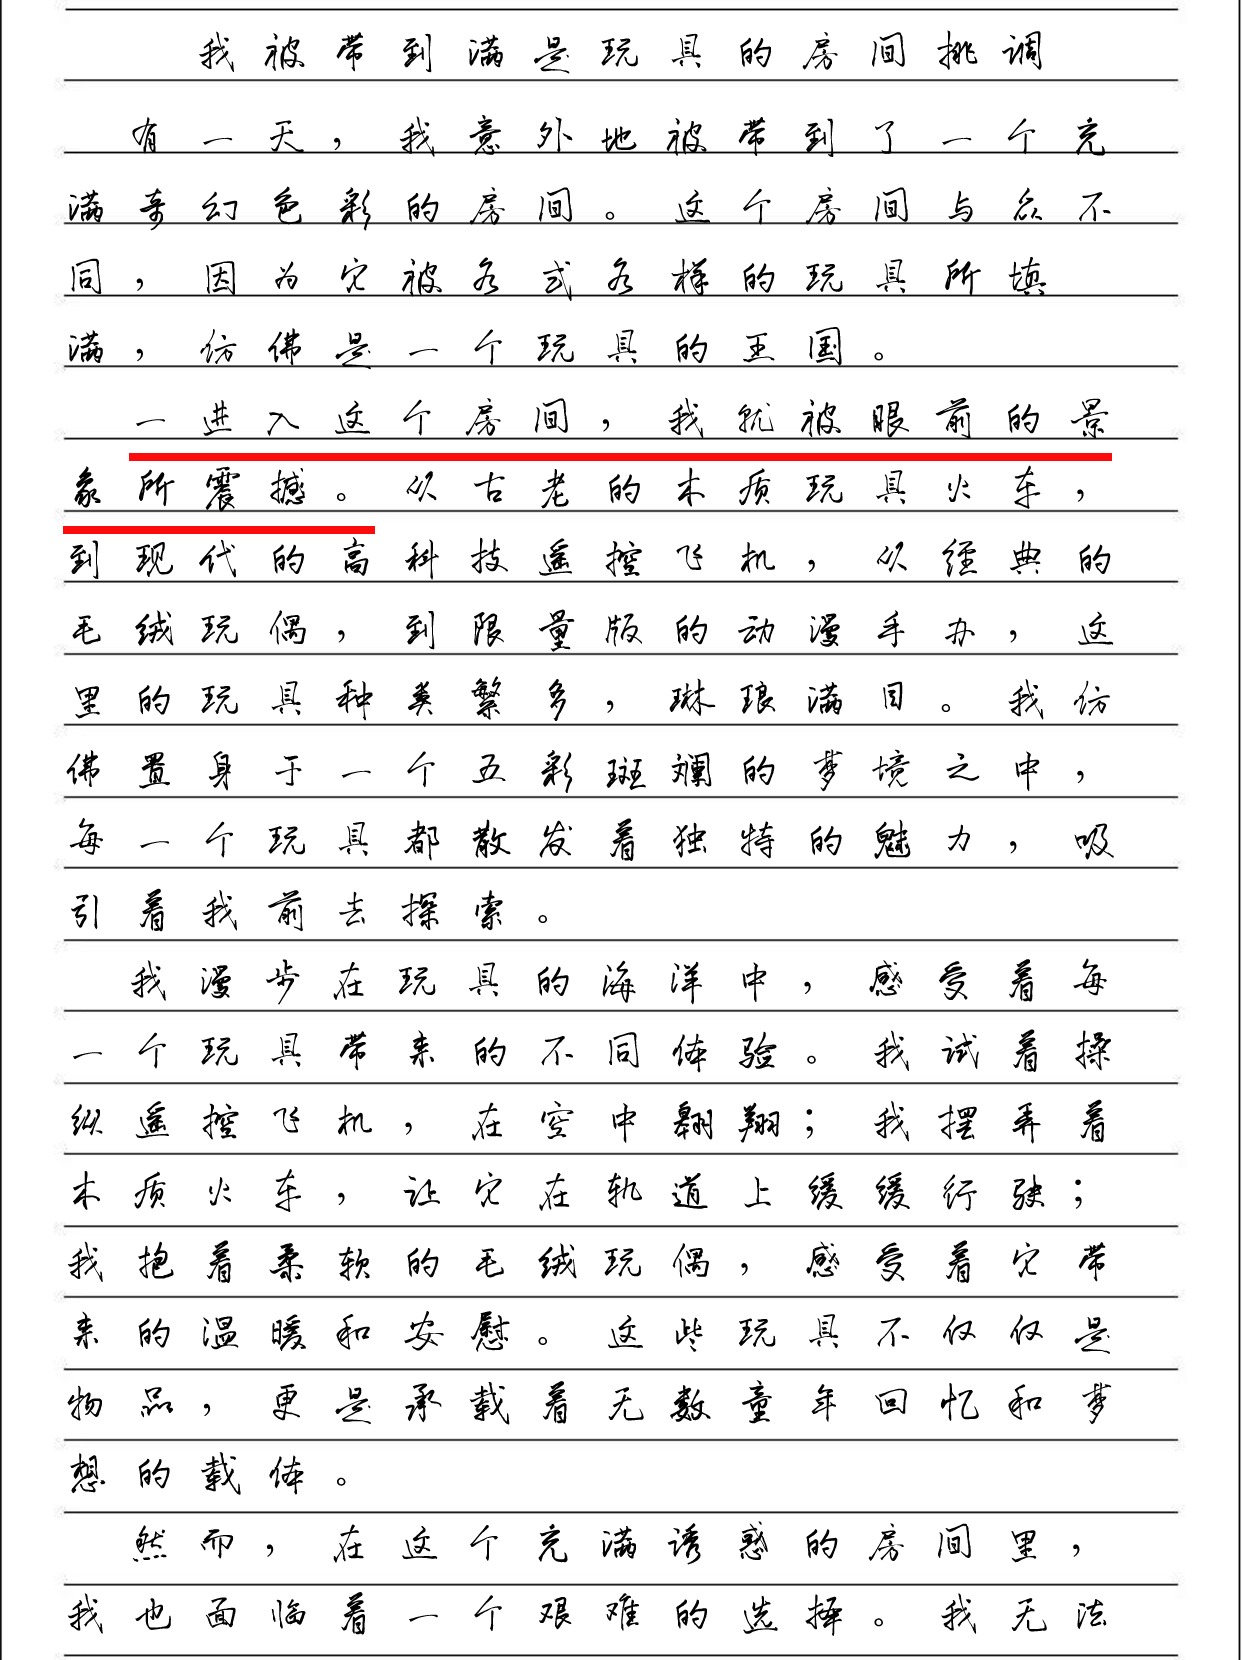 我被带到满是玩具的房间挑调
有一天，我意外地被带到了一个充
满奇幻色彩的房间。这个房间与众不
同，因为它被各式各样的玩具所填
满，仿佛是一个玩具的王国。
一进入这个房间，我就被眼前的景
象所震撼。从古老的木质玩具火车，
到现代的高科技遥控飞机，从经典的
毛绒玩偶，到限量版的动漫手办，这
里的玩具种类繁多，琳琅满目。我仿
佛置身于一个五彩斑斓的梦境之中，
每一个玩具都散发着独特的魅力，吸
引着我前去探索。
我漫步在玩具的海洋中，感受着每
一个玩具带来的不同体验。我试着操
纵遥控飞机，在空中翱翔；我摆弄着
木质火车，让它在轨道上缓缓行驶；
我抱着柔软的毛绒玩偶，感受着它带
来的温暖和安慰。这些玩具不仅仅是
物品，更是承载着无数童年回忆和梦
想的载体。
然而，在这个充满诱惑的房间里，
我也面临着一个艰难的选择。我无法